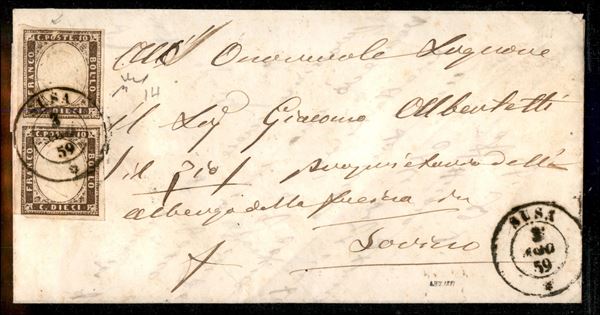 C. POSTE 10
FRANCO
BOLLO
C. DIECI
SUSA
3
AGO
59
C. POSTE 10
FRANCO
BOLLO
C. DIECI
14
All' Onorevole Signore
Il Sig Giacomo Albertetti
il
Proprietario dell'
albergo della in
Torino
SUSA
3
AGO
59